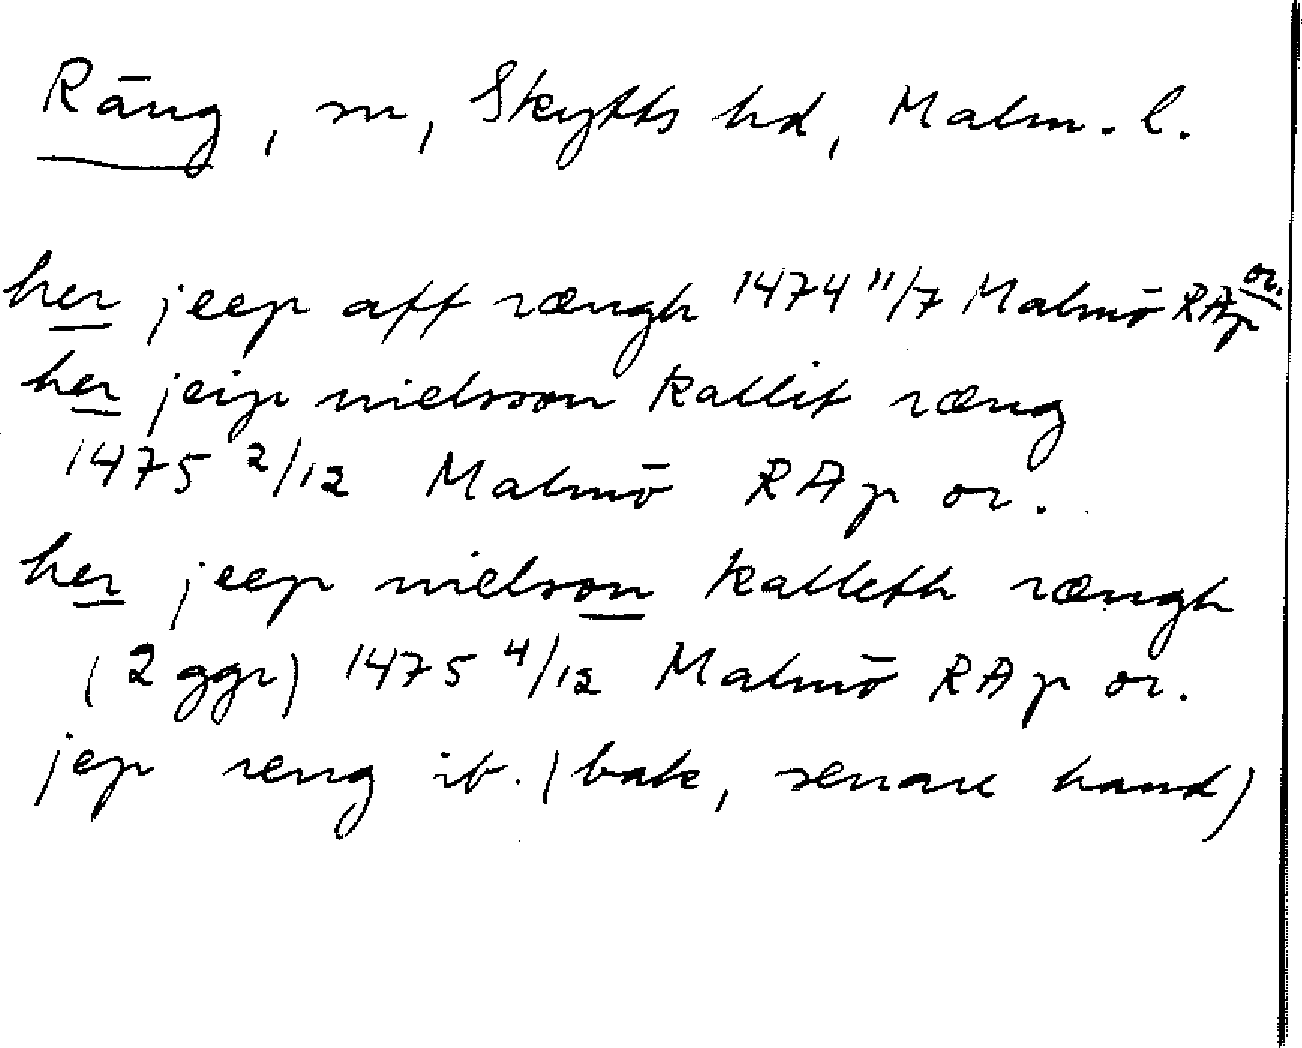 Räng, sn, Skytts hd, Malm. l.
her jeep aff rængh 1474 11/7 Malmö RAp or.
her jeip nielsson kallit ræng
1475 2/12 Malmö RAp or.
her jeep nielson kalleth rængh
(2 ggr) 1475 4/12 Malmö RAp or.
jep reng ib. (bak, senare hand)